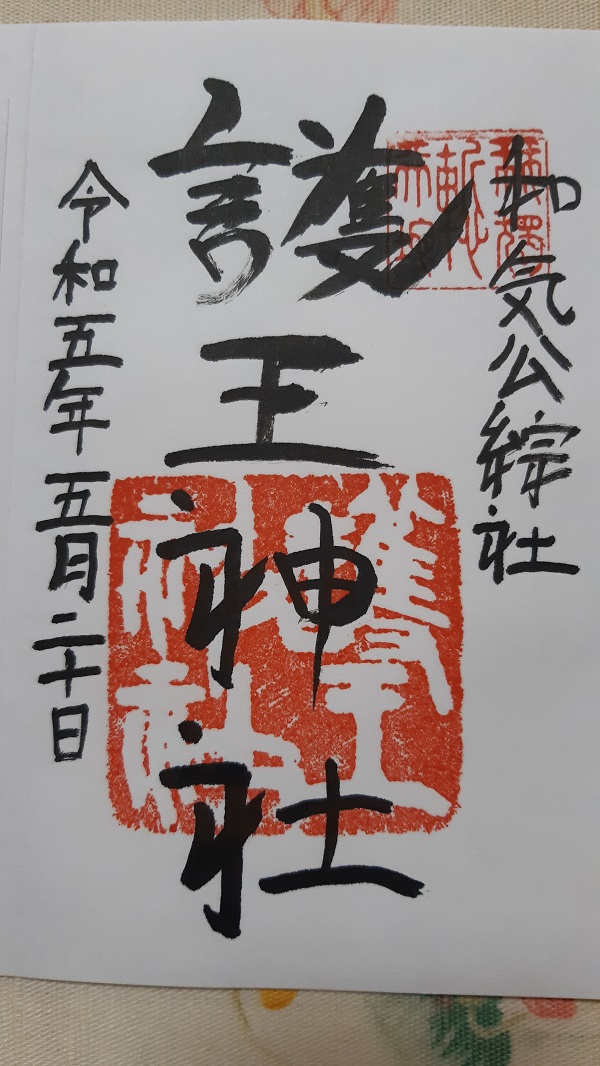 和気公綜社
護王神社
令和五年五月二十日
護王神社